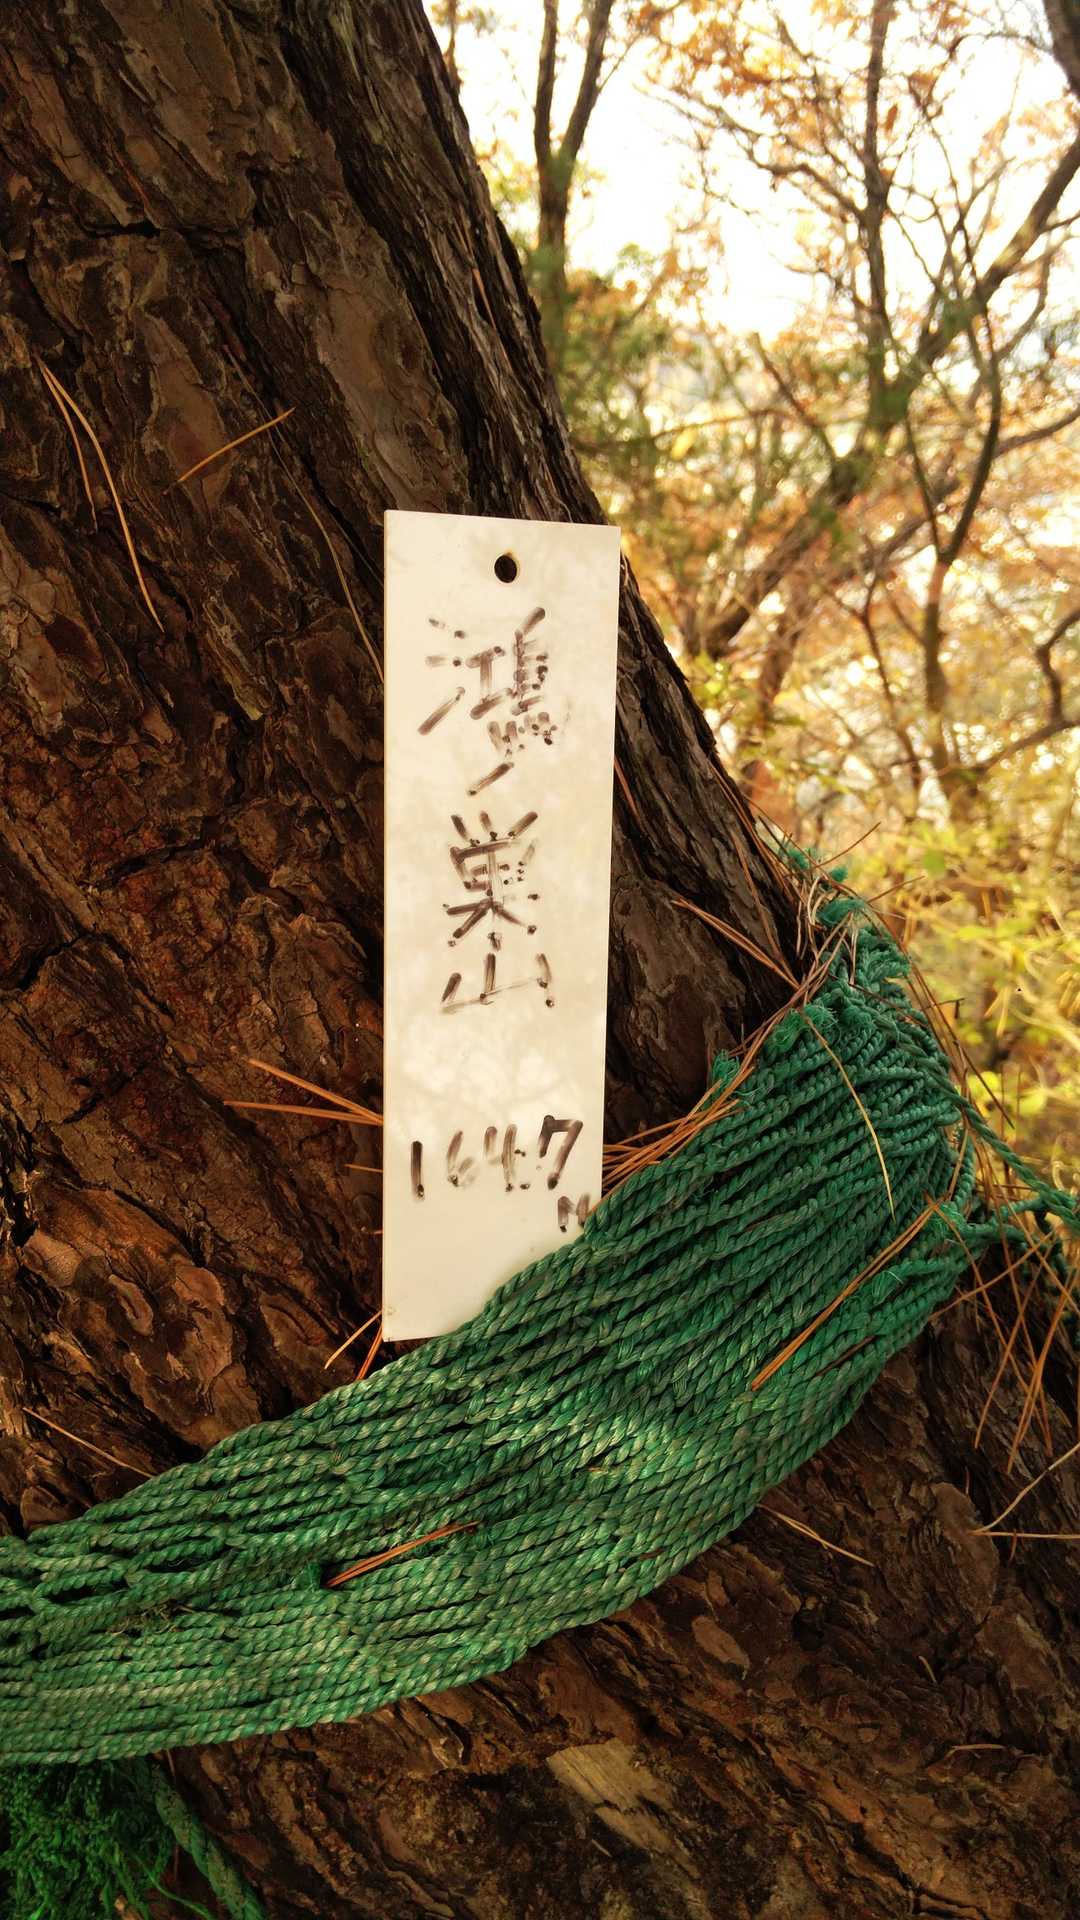 鴻ノ巣山
164.7
M